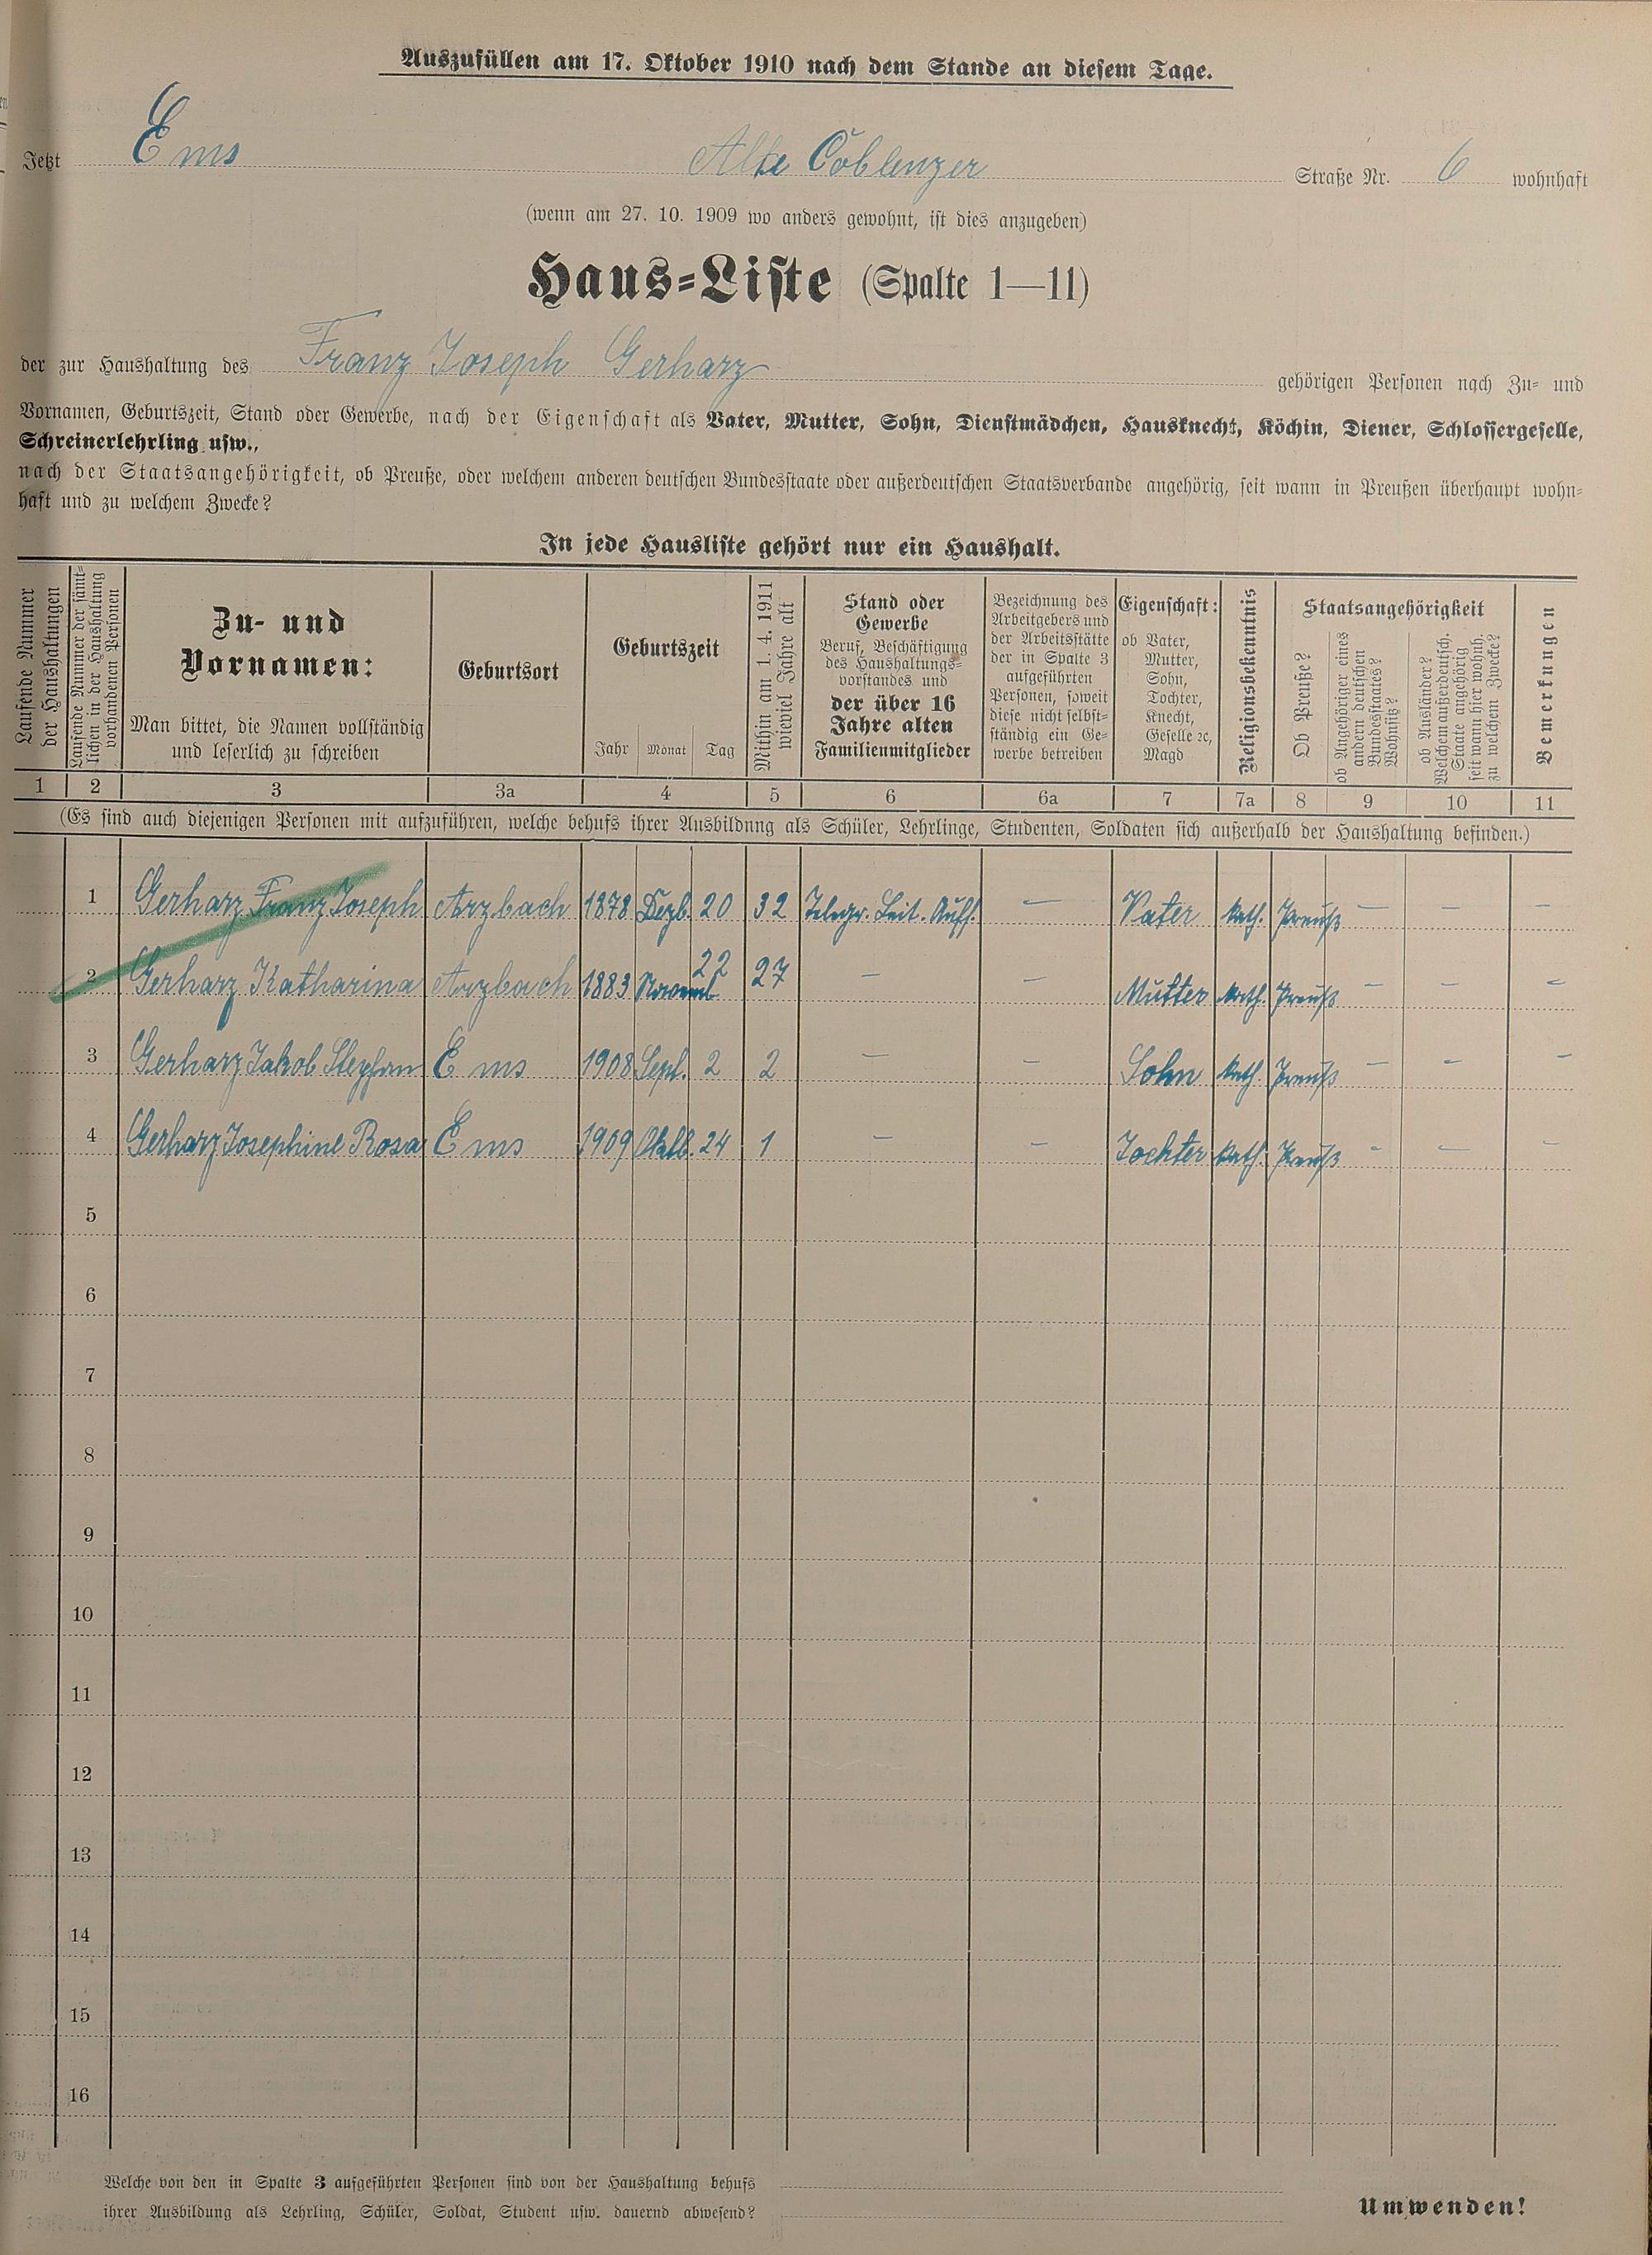 Auszufüllen am 17. Oktober 1910 nach dem Stande an diesem Tage.
Jetzt Ems Alte Coblenzer Straße Nr. 6 wohnhaft
(wenn am 27. 10. 1909 wo anders gewohnt, ist dies anzugeben)
Haus-Liste (Spalte 1—11)
der zur Haushaltung des Franz Joseph Gerharz gehörigen Personen nach Zu- und
Vornamen, Geburtszeit, Stand oder Gewerbe, nach der Eigenschaft als Vater, Mutter, Sohn, Dienstmädchen, Hausknecht, Köchin, Diener, Schlossergeselle,
Schreinerlehrling usw.,
nach der Staatsangehörigkeit, ob Preuße, oder welchem anderen deutschen Bundesstaate oder außerdeutschen Staatsverbande angehörig, seit wann in Preußen überhaupt wohn-
haft und zu welchem Zwecke?
In jede Hausliste gehört nur ein Haushalt.
Laufende Nummer
der Haushaltungen
Laufende Nummer der sämt-
lichen in der Haushaltung
vorhandenen Personen
Zu- und
Vornamen:
Man bittet, die Namen vollständig
und leserlich zu schreiben
Geburtsort
Geburtszeit
Jahr Monat Tag
Mithin am 1. 4. 1911
wieviel Jahre alt
Stand oder
Gewerbe
Beruf, Beschäftigung
des Haushaltungs-
vorstandes und
der über 16
Jahre alten
Familienmitglieder
Bezeichnung des
Arbeitgebers und
der Arbeitsstätte
der in Spalte 3
aufgeführten
Personen, soweit
diese nicht selbst-
ständig ein Ge-
werbe betreiben
Eigenschaft:
ob Vater,
Mutter,
Sohn,
Tochter,
Knecht,
Geselle ec,
Magd
Religionsbekenntnis
Staatsangehörigkeit
Ob Preuße?
ob Angehöriger eines
andern deutschen
Bundesstaates?
Wohnsitz?
ob Ausländer?
Welchem außerdeutsch.
Staate angehörig
seit wann hier wohnh.
zu welchem Zwecke?
Bemerkungen
1 2 3 3a 4 5 6 6a 7 7a 8 9 10 11
(Es sind auch diejenigen Personen mit aufzuführen, welche behufs ihrer Ausbildung als Schüler, Lehrlinge, Studenten, Soldaten sich außerhalb der Haushaltung befinden.)
1 Gerharz Franz Joseph Arzbach 1878 Dezb. 20 32 Telegr. Leit. Auff. — Vater Kath. Preuß — — —
2 Gerharz Katharina Arzbach 1883 Novemb. 22 27 — — Mutter Kath. Preuß — — —
3 Gerharz Jakob Stephan Ems 1908 Sept. 2 2 — — Sohn Kath. Preuß — — —
4 Gerharz Josephine Rosa Ems 1909 Oktb. 24 1 — — Tochter Kath. Preuß — — —
5
6
7
8
9
10
11
12
13
14
15
16
Welche von den in Spalte 3 aufgeführten Personen sind von der Haushaltung behufs
ihrer Ausbildung als Lehrling, Schüler, Soldat, Student usw. dauernd abwesend?
Umwenden!